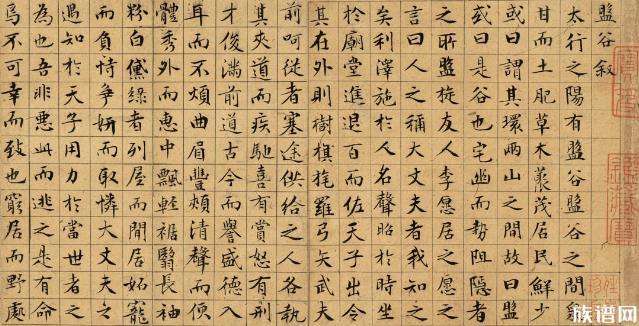 盤谷叙
太行之陽有盤谷盤谷之間泉
甘而土肥草木藂茂居民鮮少
或曰謂其環兩山之間故曰盤
或曰是谷也宅幽而勢阻隱者
之所盤旋友人李愿居之愿之
言曰人之稱大丈夫者我知之
矣利澤施於人名聲昭於時坐
於廟堂進退百而佐天子出令
其在外則樹旗旄羅弓矢武夫
前呵從者塞途供給之人各執
其夾道而疾馳喜有賞怒有刑
才俊滿前道古今而譽盛德入
耳而不煩曲眉豐頰清聲而便
體秀外而惠中飄輕裾翳長袖
粉白黛綠者列屋而閒居妬寵
而負恃爭妍而取憐大丈夫之
遇知於天子用力於當世者之
為也吾非惡此而逃之是有命
焉不可幸而致也窮居而野處
族谱网